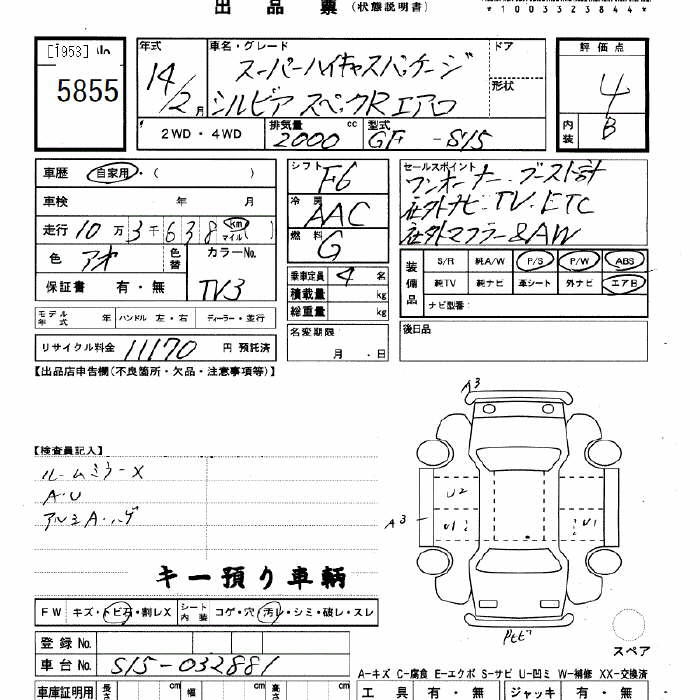 出品票 (状態説明書)
*1003323844*
[1953]
5855
年式 14/2月
車名・グレード スーパーハイキャスパッケージ
シルビア スペックR エアロ
ドア
形状
評価点 4
内装 B
2WD・4WD
排気量 2000 cc
型式 GF-S15
車歴 自家用・(
車検 年 月
走行 10万3千638 km マイル ( )
色 アオ 色替
カラーNo. TV3
保証書 有・無
シフト F6
冷房 AAC
燃料 G
乗車定員 4 名
積載量 kg
総重量 kg
名変期限 月・日
セールスポイント
ワンオーナー ブースト計
社外ナビ・TV・ETC
社外マフラー&AW
装備品 S/R 純A/W P/S P/W ABS
純TV 純ナビ 革シート 外ナビ エアB
ナビ型番:
後日品
モデル年式 年 ハンドル 左・右 ディーラー・並行
リサイクル料金 11170 円 預託済
【出品店申告欄(不良箇所・欠品・注意事項等)】
【検査員記入】
ルームミラーX
A・U
アルミA・ハゲ
A3
U2
A3
U1
U1
キー預り車輌
FW キズ・トビ石・割レX
シート内装 コゲ・穴・汚レ・シミ・破レ・スレ
登録No.
車台No. S15-032881
スペア
A-キズ C-腐食 E-エクボ S-サビ U-凹ミ W-補修 XX-交換済
車庫証明用 長さ cm 幅 cm 高さ cm
工具 有・無 ジャッキ 有・無